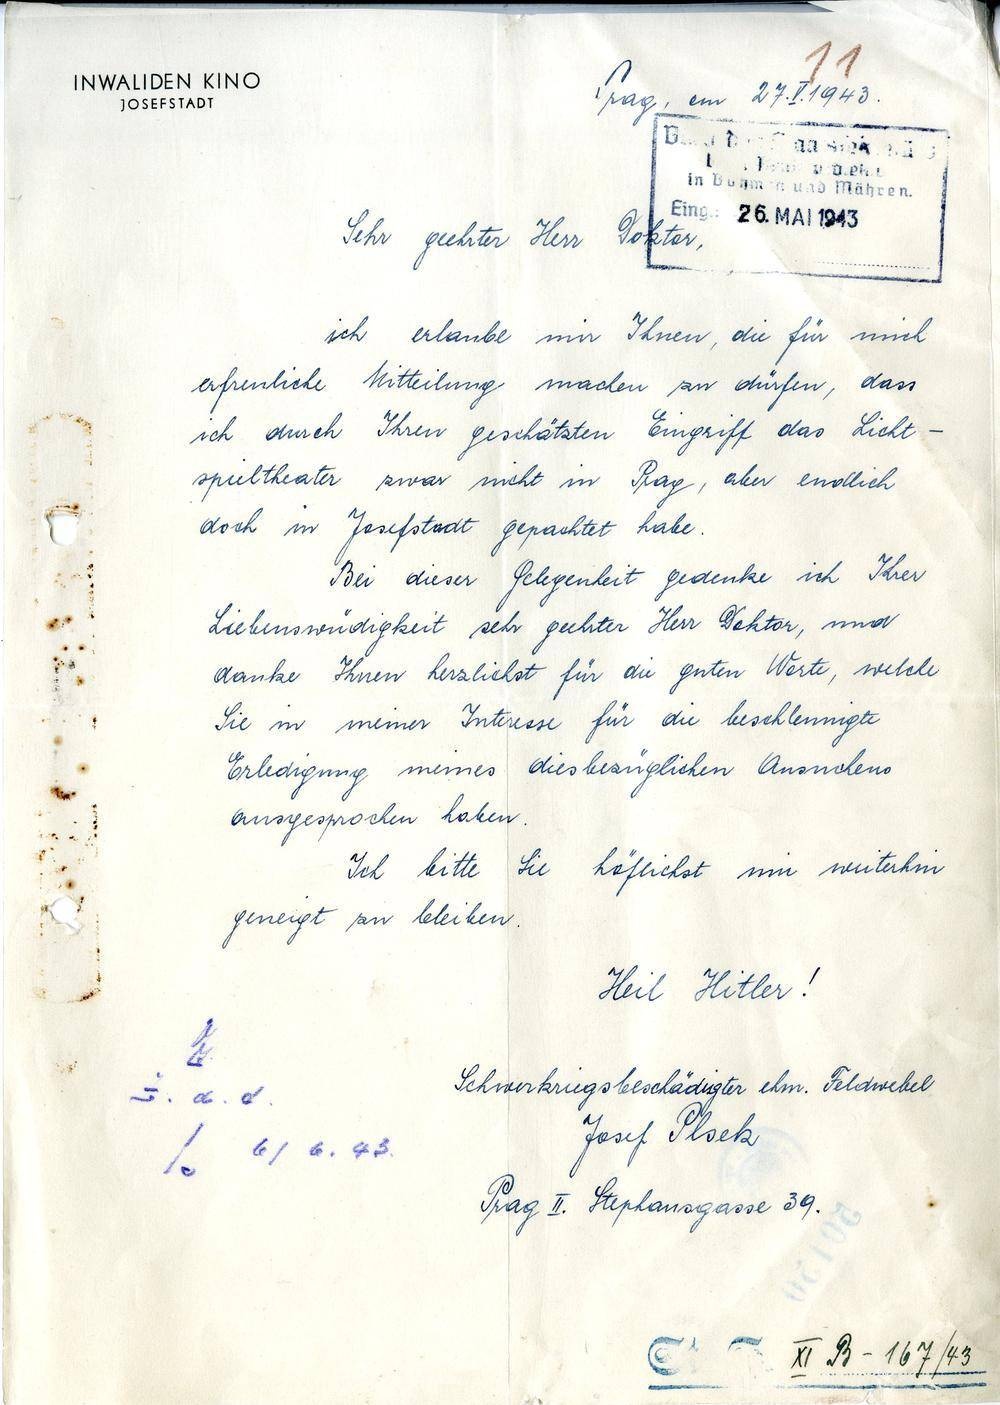 INWALIDEN KINO
JOSEFSTADT
11
Prag, am 27.V.1943.
in Böhmen und Mähren.
Eing.: 26. MAI 1943
Sehr geehrter Herr Doktor,
ich erlaube mir Ihnen, die für mich
erfreuliche Mitteilung machen zu dürfen, dass
ich durch Ihren geschätzten Eingriff das Licht-
spieltheater zwar nicht in Prag, aber endlich
doch in Josefstadt gepachtet habe.
Bei dieser Gelegenheit gedenke ich Ihrer
Liebenswüdigkeit sehr geehrter Herr Doktor, und
danke Ihnen herzlichst für die guten Worte, welche
Sie in meiner Interesse für die beschleunigte
Erledigung meines diesbezüglichen Ansuchens
ausgesprochen haben.
Ich bitte Sie höflichst mir weiterhin
geneigt zu bleiben.
Heil Hitler!
Schwerkriegsbeschädigter ehm. Feldwebel
Josef Plsek
Prag II. Stephansgasse 39.
6/ 6. 43.
50130
XI B - 167/43